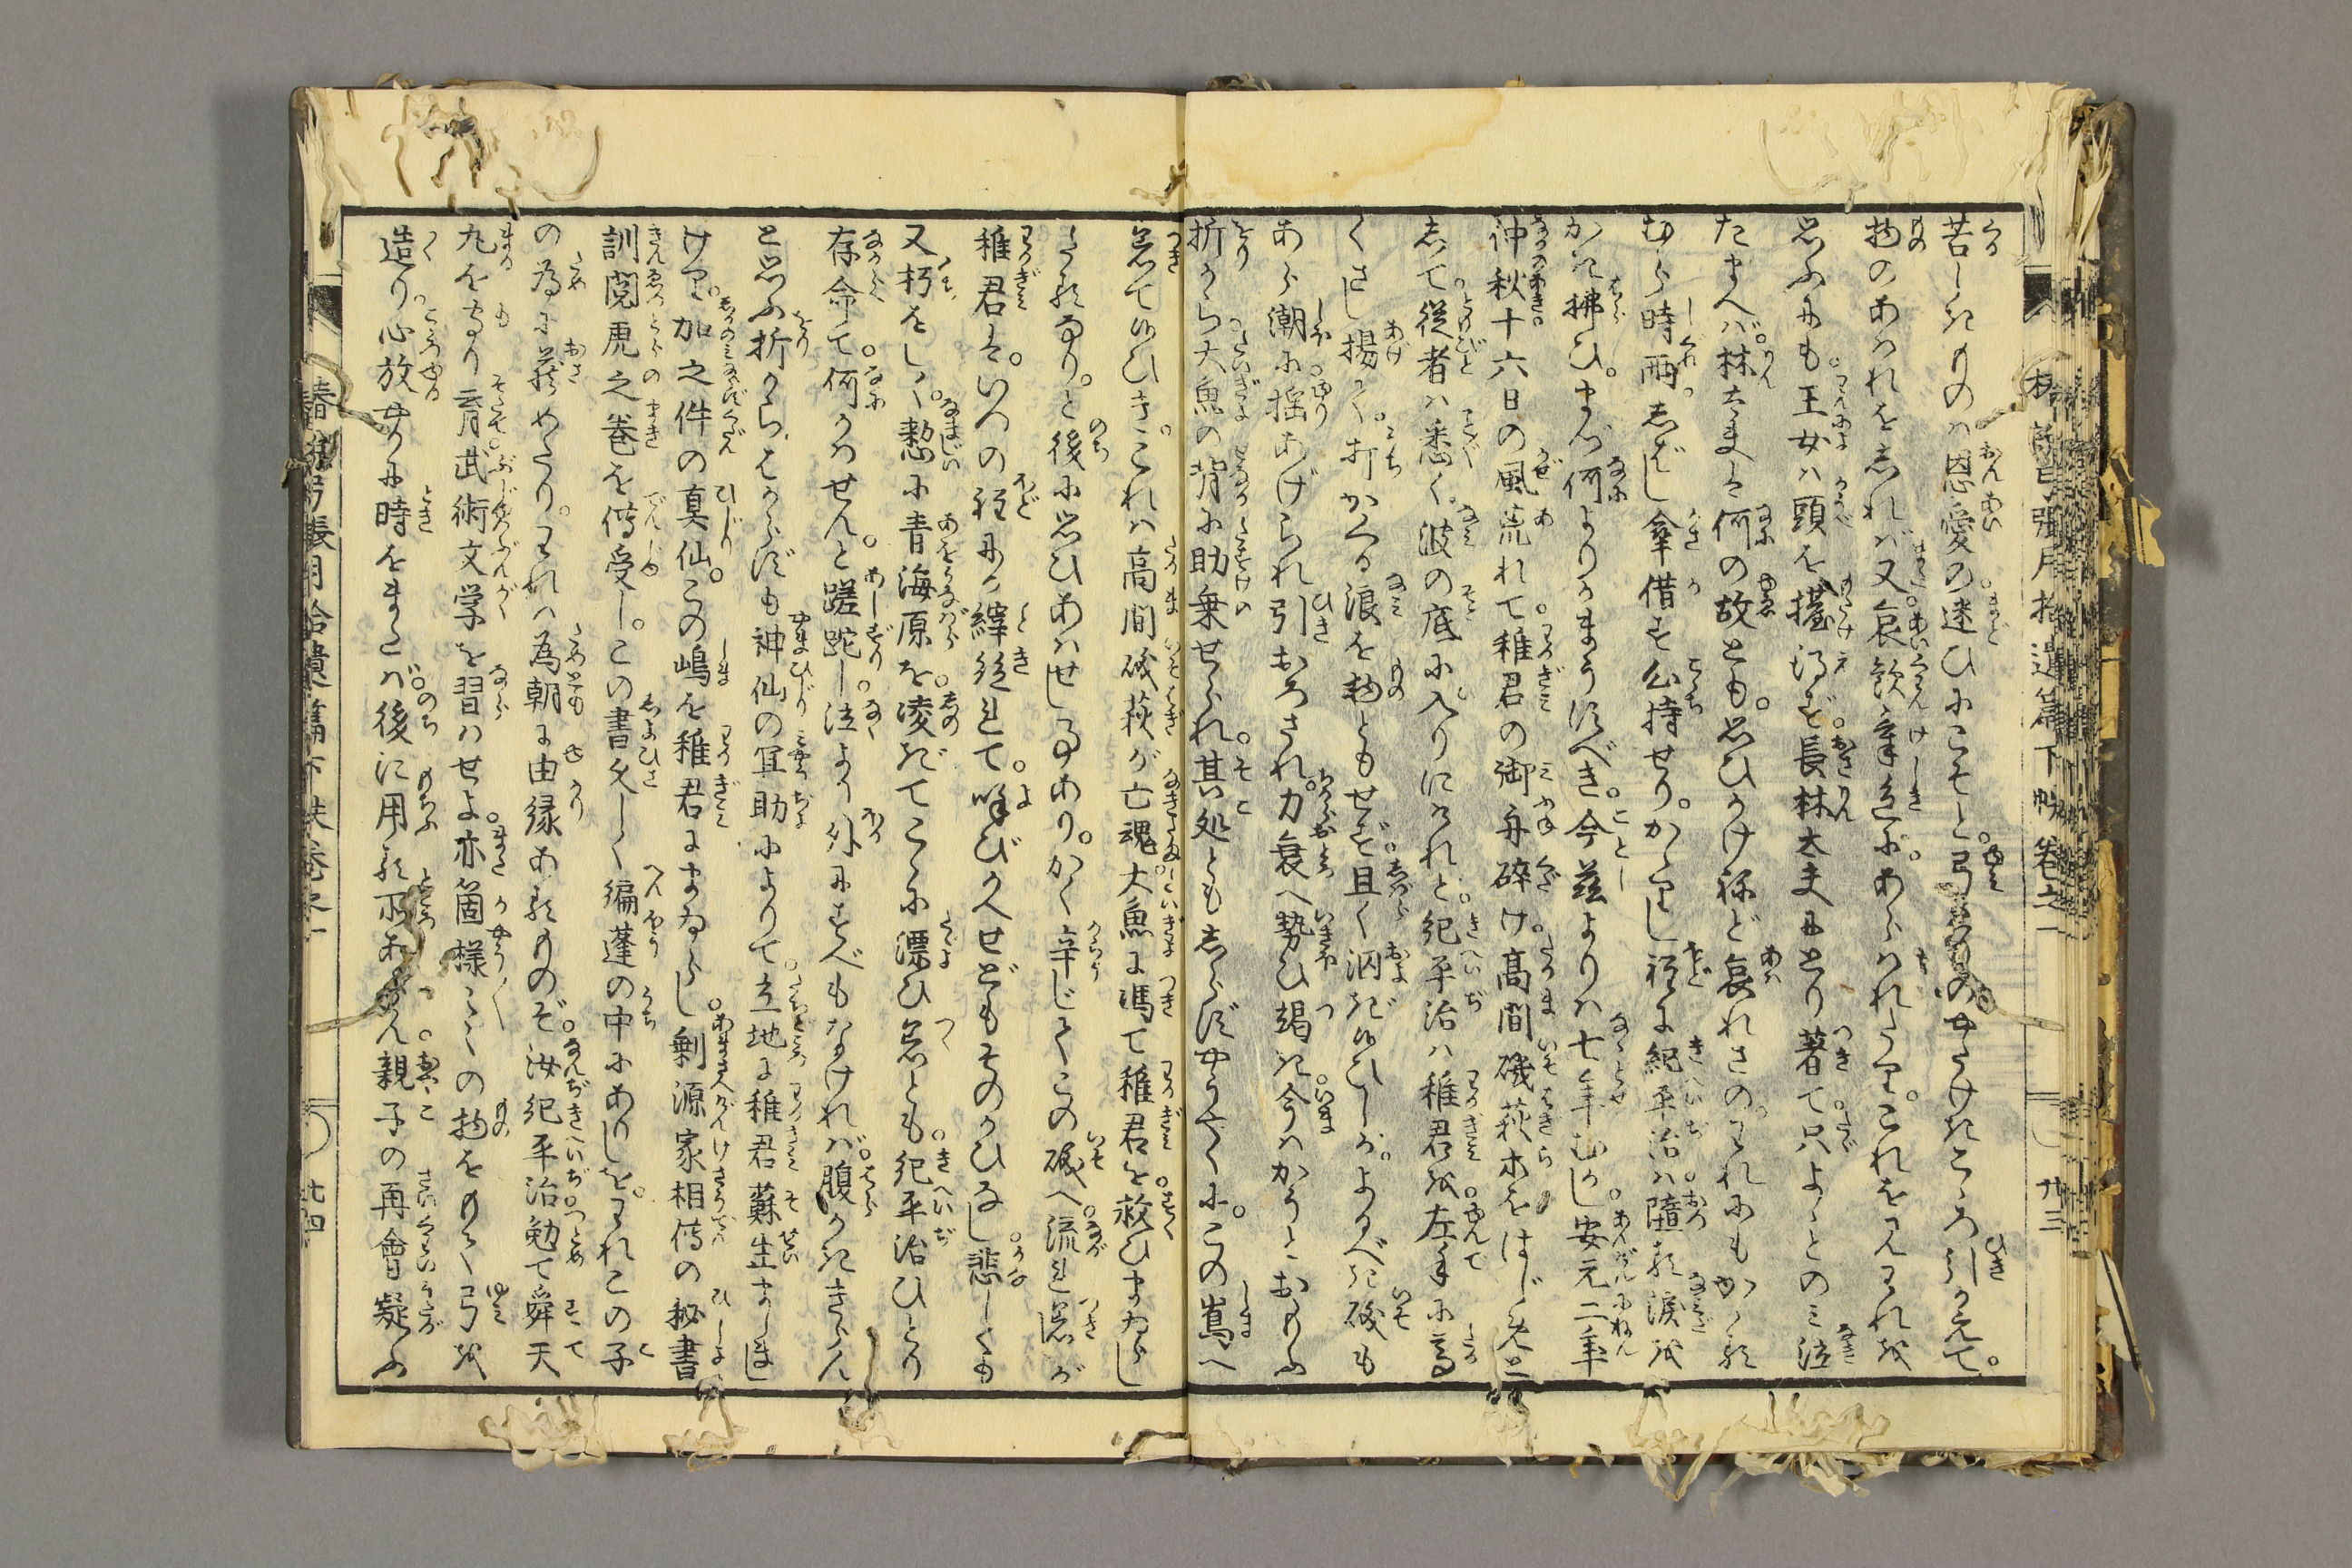 苦しきものハ恩愛の迷ひにこそと。弓のたけきこゝろ引かえて。
物のあはれをしれバ又。哀歓辛色に。あらハれたり。これを見われを
思ふにも。王女ハ頭を擡得ず。長林太夫にとり著て。只よゝとのミ泣
たまへバ。林太夫は何の故とも。思ひかけねど哀れさの。われにもかゝる
むら時雨しばし傘借す心持せり。かくりし程に紀平治ハ。墮る涙を
かき拂ひ。まづ何よりかまうすべき。今茲よりハ七年むかし。安元二年
仲秋十六日の風荒れて。稚君の御舟碎け。高間磯萩ホをはじめと
して。從者ハ悉く。波の底に入りにけれと。紀平治ハ稚君を。左手に高
くさし揚て。打かくる浪を物ともせず。且く泅ぎ給ひしが。よるべき磯も
あら潮に。揺あげられ引おろされ。力衰へ勢ひ竭き。今ハかうとおもふ
折から。大魚の背に助乗せられ。其処ともしらずやうやくに。この嶌へ
着て給ひき。これハ高間磯萩が亡魂。大魚に馮て稚君を。救ひまゐらし
たるなり。と後に思ひあハせし事あり。かく辛じてこの磯へ。流れ着が
稚君は。いつの程にか縡絶れて。呼びかへせどもそのかひなし。悲しくも
又朽をしく。憖に青海原を。凌ぎてこゝに漂ひ着とも。紀平治ひとり
存命て。何かハせんと。蹉跎し。泣より外にすべもなけれバ。腹かききらん
と思ふ折から、はからずも神仙の冥助によりて。立地に稚君蘇生ましまし
けり。加之件の真仙。この嶋を稚君にまゐらし。剰源家相傳の秘書
訓閲虎之巻を傳受し。この書久しく編蓬の中にありしを。われこの子
の為に蔵めたり。われハ為朝に由縁あるものぞ。汝紀平治勉て舜天
丸を守り育。武術文学を習ハせよ。亦箇様々々の物をもて。弓を
造り。心放せに時をまたバ。後に用る所あらん。親子の再會疑ふ
椿説弓張月拾遺篇下帙巻之一
廿三
椿説弓張月拾遺篇下帙巻之一
廿四